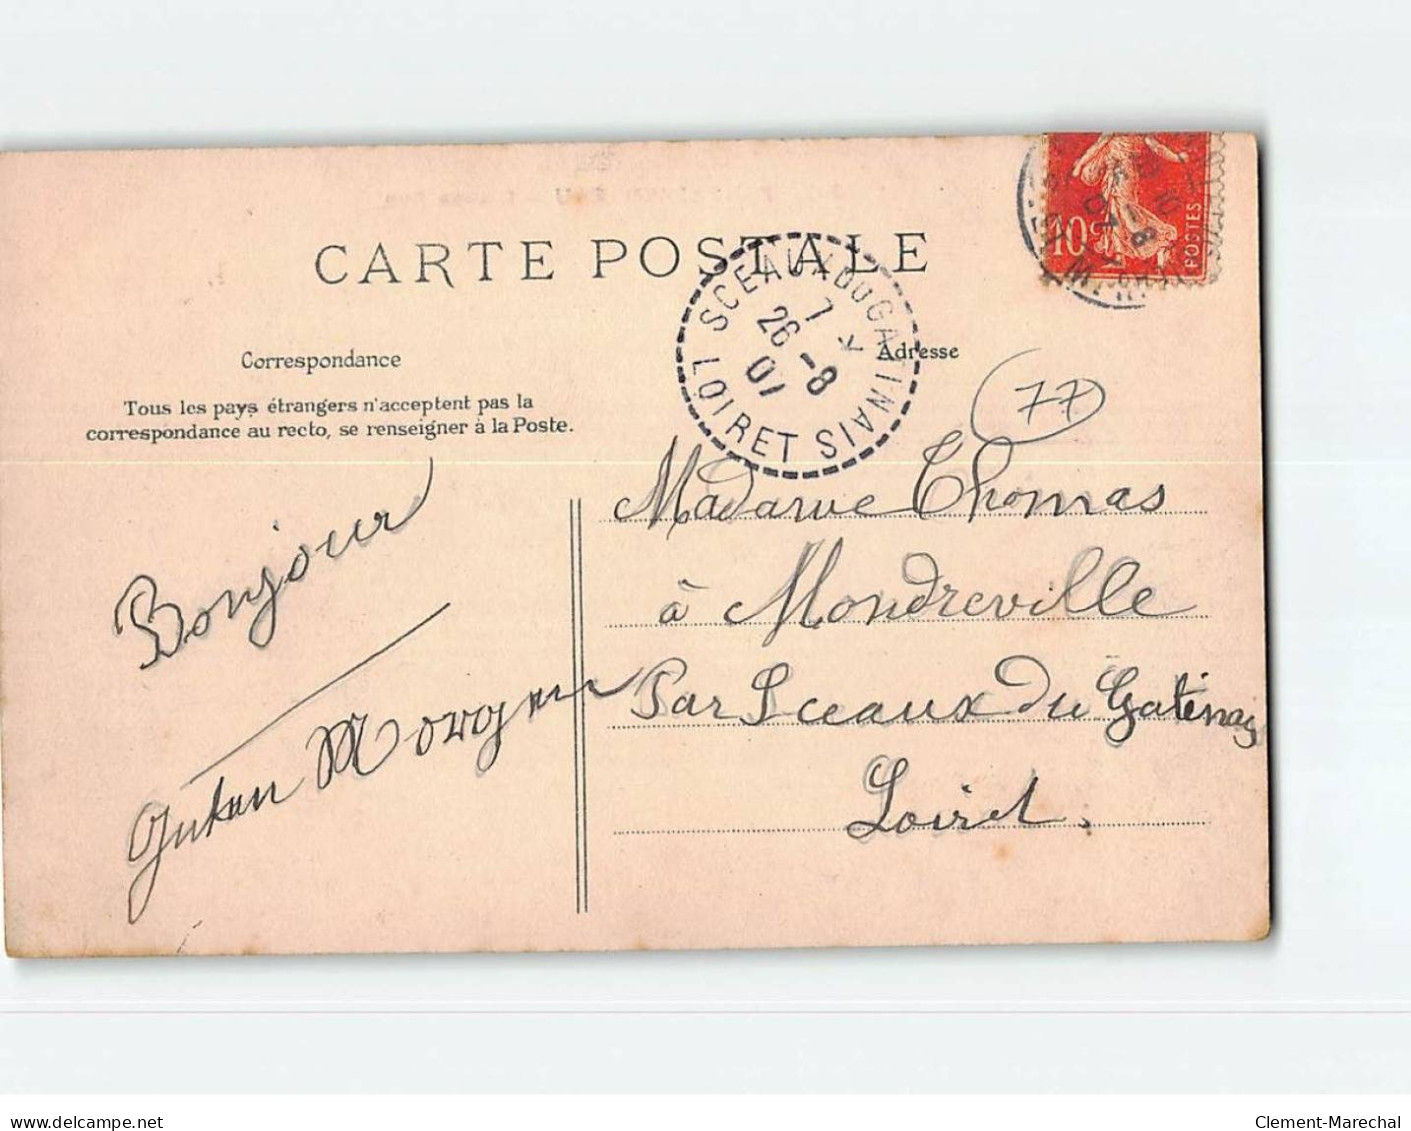 CARTE POSTALE
SCEAUX DU GATINAIS
7
26 -8
07
LOIRET
10c
POSTES
Correspondance
Adresse
77
Tous les pays étrangers n'acceptent pas la
correspondance au recto, se renseigner à la Poste.
Bonjour
Madame Thomas
à Mondreville
Par Sceaux du Gatinais
Loiret.
delcampe.net
Clement-Marechal